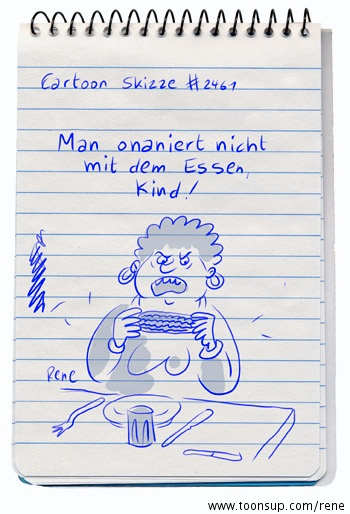 Cartoon Skizze #2461
Man onaniert nicht
mit dem Essen,
Kind!
Rene
www.toonsup.com/rene